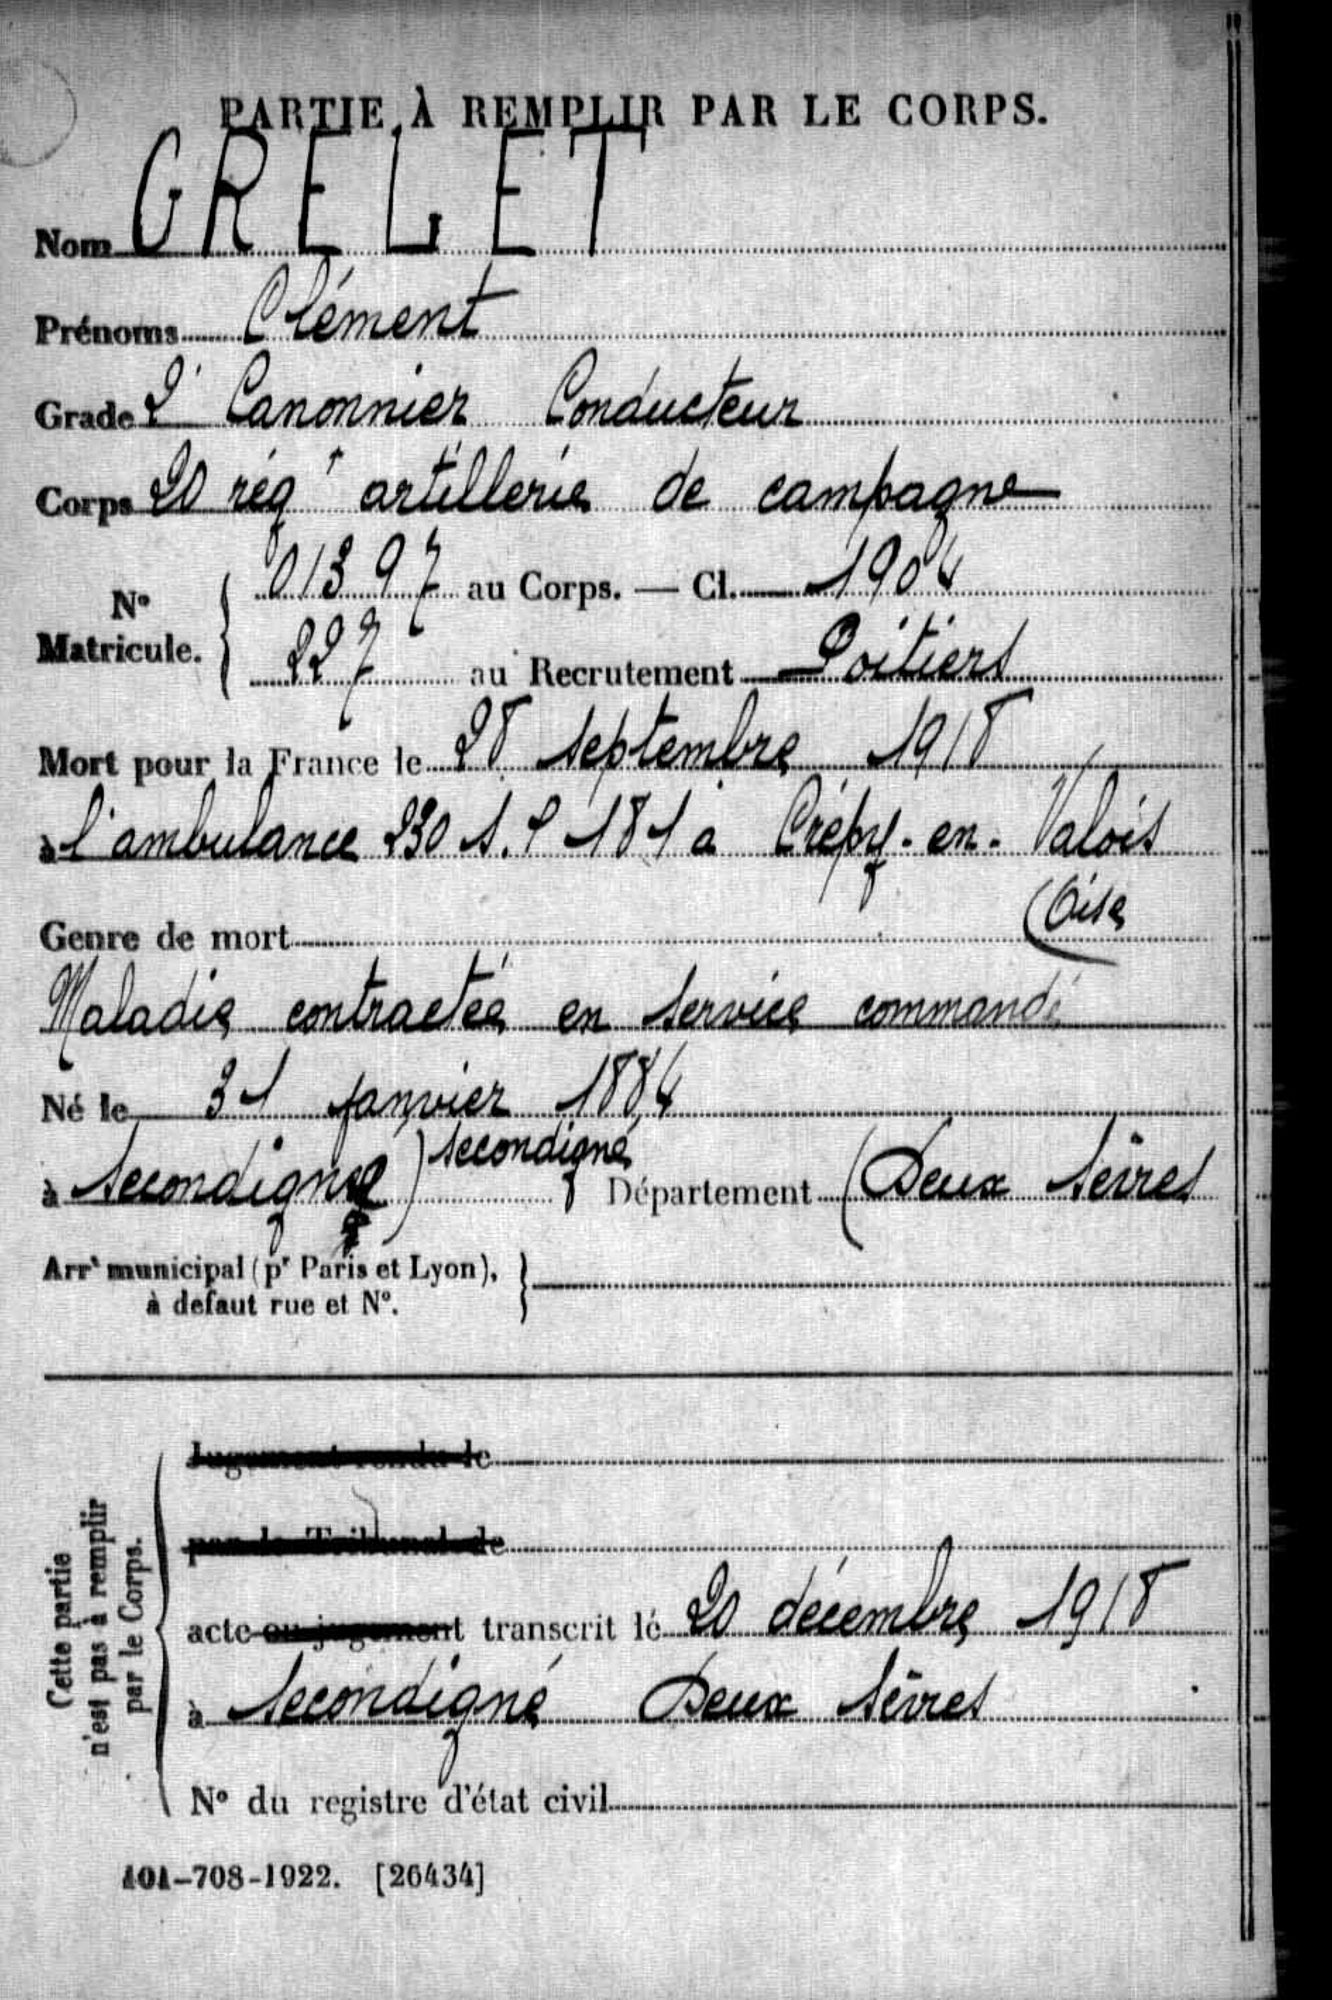 PARTIE À REMPLIR PAR LE CORPS.
Nom GRELET
Prénoms Clément
Grade 2e Canonnier Conducteur
Corps 20 régt artillerie de campagne
N° Matricule. { 01397 au Corps. — Cl. 1904
227 au Recrutement Poitiers
Mort pour la France le 28 septembre 1918
à l'ambulance 230 S.P 181 à Crépy-en-Valois
(Oise
Genre de mort
Maladie contractée en service commandé
Né le 31 janvier 1884
à Secondigné) Secondigné Département (Deux Sèvres
Arrt municipal (pr Paris et Lyon),
à defaut rue et N°.
Cette partie
n'est pas à remplir
par le Corps.
Jugement rendu le
par le Tribunal de
acte ou jugement transcrit le 20 décembre 1918
à Secondigné Deux Sèvres
N° du registre d'état civil
101-708-1922. [26434]